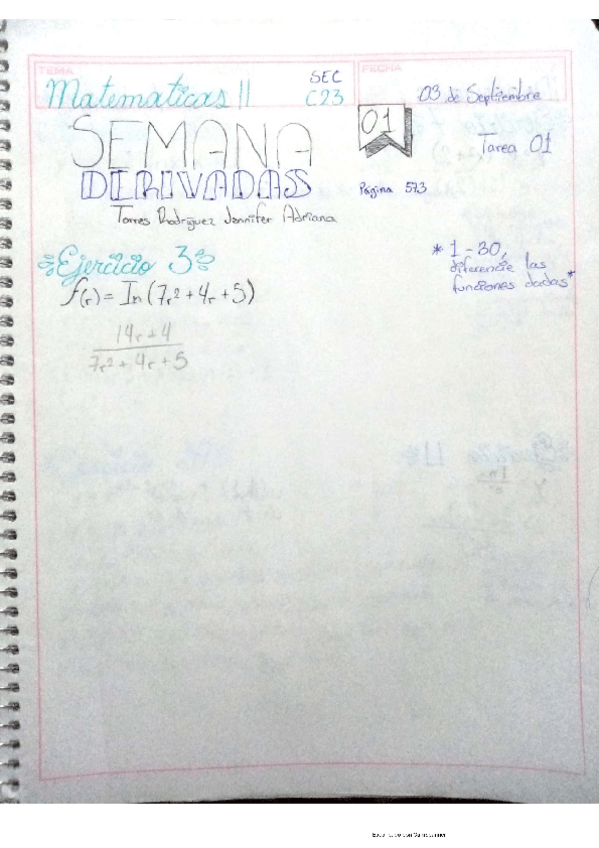 TEMA
FECHA
Matematicas II
SEC
C23
03 de Septiembre
SEMANA
01
Tarea 01
DERIVADAS
Página 573
Torres Rodríguez Jennifer Adriana
Ejercicio 3
* 1 - 30,
diferencie las
funciones dadas*
f(r) = In (7r² + 4r + 5)
14r + 4
7r² + 4r + 5